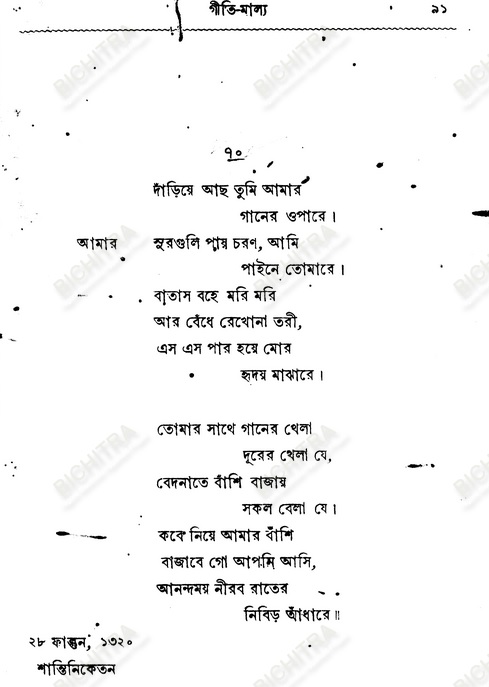 গীতি-মাল্য ৯১
৭০
দাঁড়িয়ে আছ তুমি আমার
গানের ওপারে।
আমার সুরগুলি পায় চরণ, আমি
পাইনে তোমারে।
বাতাস বহে মরি মরি
আর বেঁধে রেখোনা তরী,
এস এস পার হয়ে মোর
হৃদয় মাঝারে।
তোমার সাথে গানের খেলা
দূরের খেলা যে,
বেদনাতে বাঁশি বাজায়
সকল বেলা যে।
কবে নিয়ে আমার বাঁশি
বাজাবে গো আপনি আসি,
আনন্দময় নীরব রাতের
নিবিড় আঁধারে॥
২৮ ফাল্গুন, ১৩২০
শান্তিনিকেতন
BICHITRA
BICHITRA
BICHITRA
BICHITRA
BICHITRA
BICHITRA
BICHITRA
BICHITRA